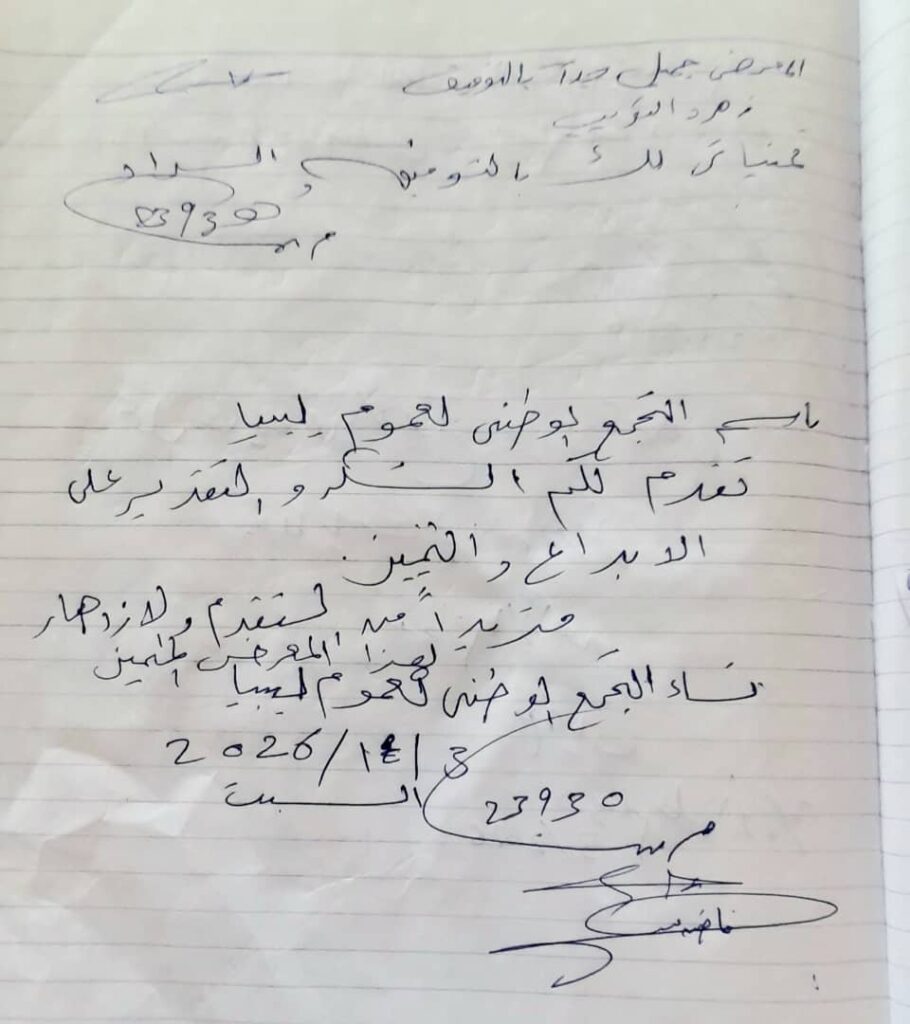 المعرض جميل جداً بالتوفيق
زهرة
تمنياتي لك بالتوفيق و السداد
23930
م س
باسم التجمع لوطني لعموم ليبيا
تقدم لكم الشكر و التقدير على
الابداع و التميز
مزيداً من لتقدم ولازدهار
لهذا المعرض المتميز
نساء التجمع لوطني لعموم ليبيا
2026/1/3
السبت
23930
م س